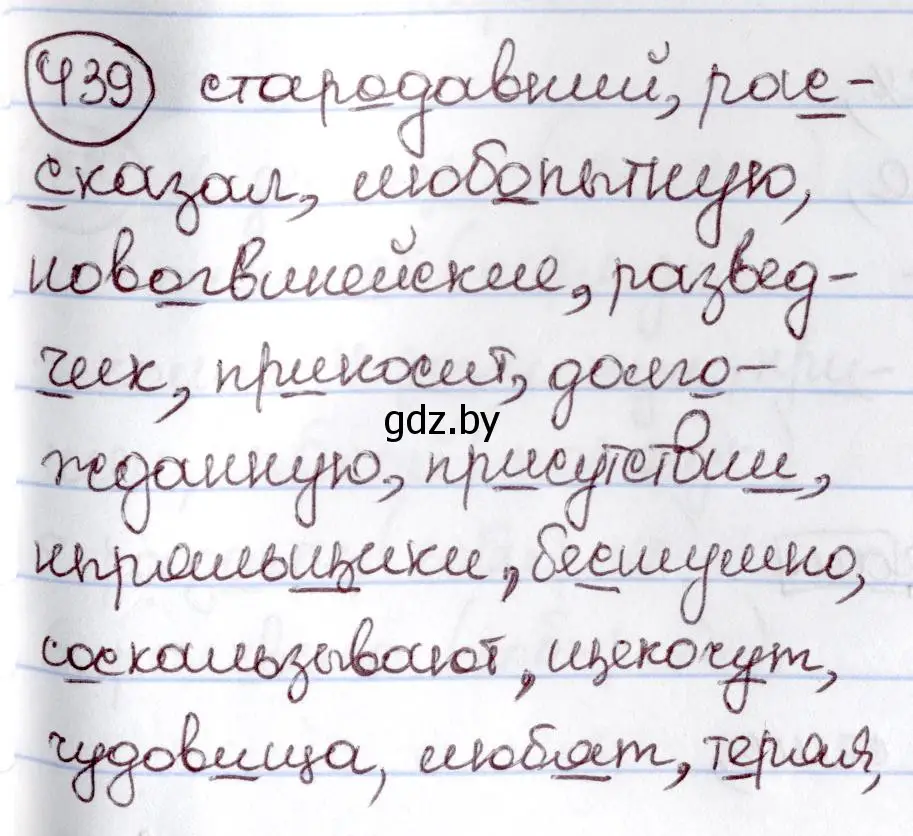 439 стародавний, рас-
сказал, любопытную,
новогвинейские, развед-
чик, приносит, долго-
gdz.by
жданную, присутствии,
игральщики, бесшумно,
соскальзывают, щекочут,
чудовища, любят, теряя,